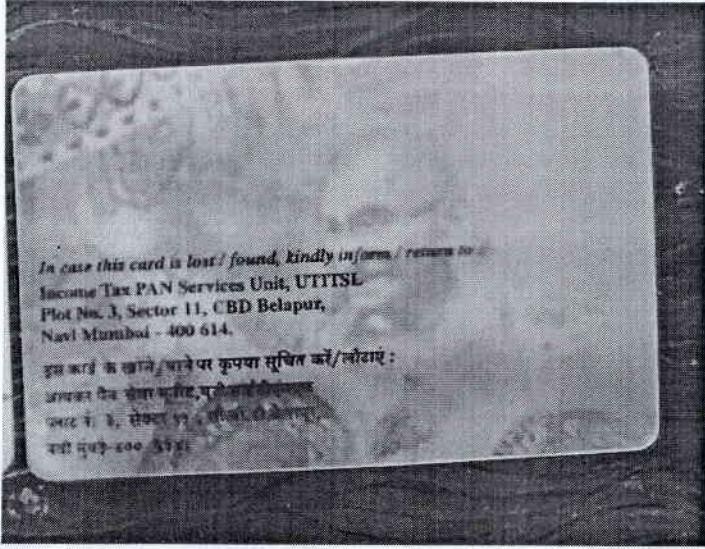 In case this card is lost / found, kindly inform / return to :
Income Tax PAN Services Unit, UTITSL
Plot No. 3, Sector 11, CBD Belapur,
Navi Mumbai - 400 614.
इस कार्ड के खोने/पाने पर कृपया सूचित करें/लौटाएं :
आयकर पैन सेवा यूनीट,
प्लाट नं. ३, सेक्टर ११,
नवी मुंबई-४००